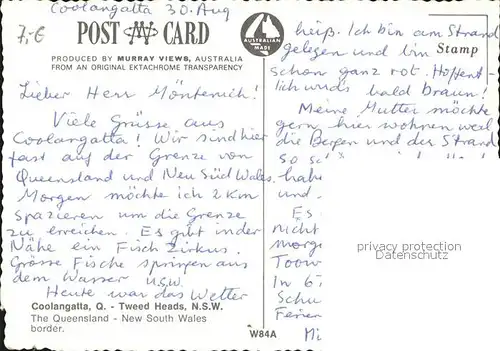 Coolangatta 30. Aug
7,-€
POST CARD
AUSTRALIAN MADE
PRODUCED BY MURRAY VIEWS, AUSTRALIA
FROM AN ORIGINAL EKTACHROME TRANSPARENCY
Lieber Herr Möntenich!
Viele Grüsse aus
Coolangatta! Wir sind hier
fast auf der Grenze von
Queensland und Neu Süd Wales.
Morgen möchte ich 2 Km
spazieren um die Grenze
zu erreichen. Es gibt in der
Nähe ein Fisch Zirkus.
Grösse Fische springen aus
dem Wasser u.s.w.
Heute war das Wetter
Coolangatta, Q. - Tweed Heads, N.S.W.
The Queensland - New South Wales
border.
W84A
heiß. Ich bin am Strand
gelegen und bin
Stamp
schon ganz rot. Hoffent
lich wirds bald braun!
Meine Mutter möchte
gern hier wohnen weil
die Bergen und der Strand
so
hab
und.
Es
nicht
morge
Toow
In 6
Schu
Ferien
privacy protection
Datenschutz